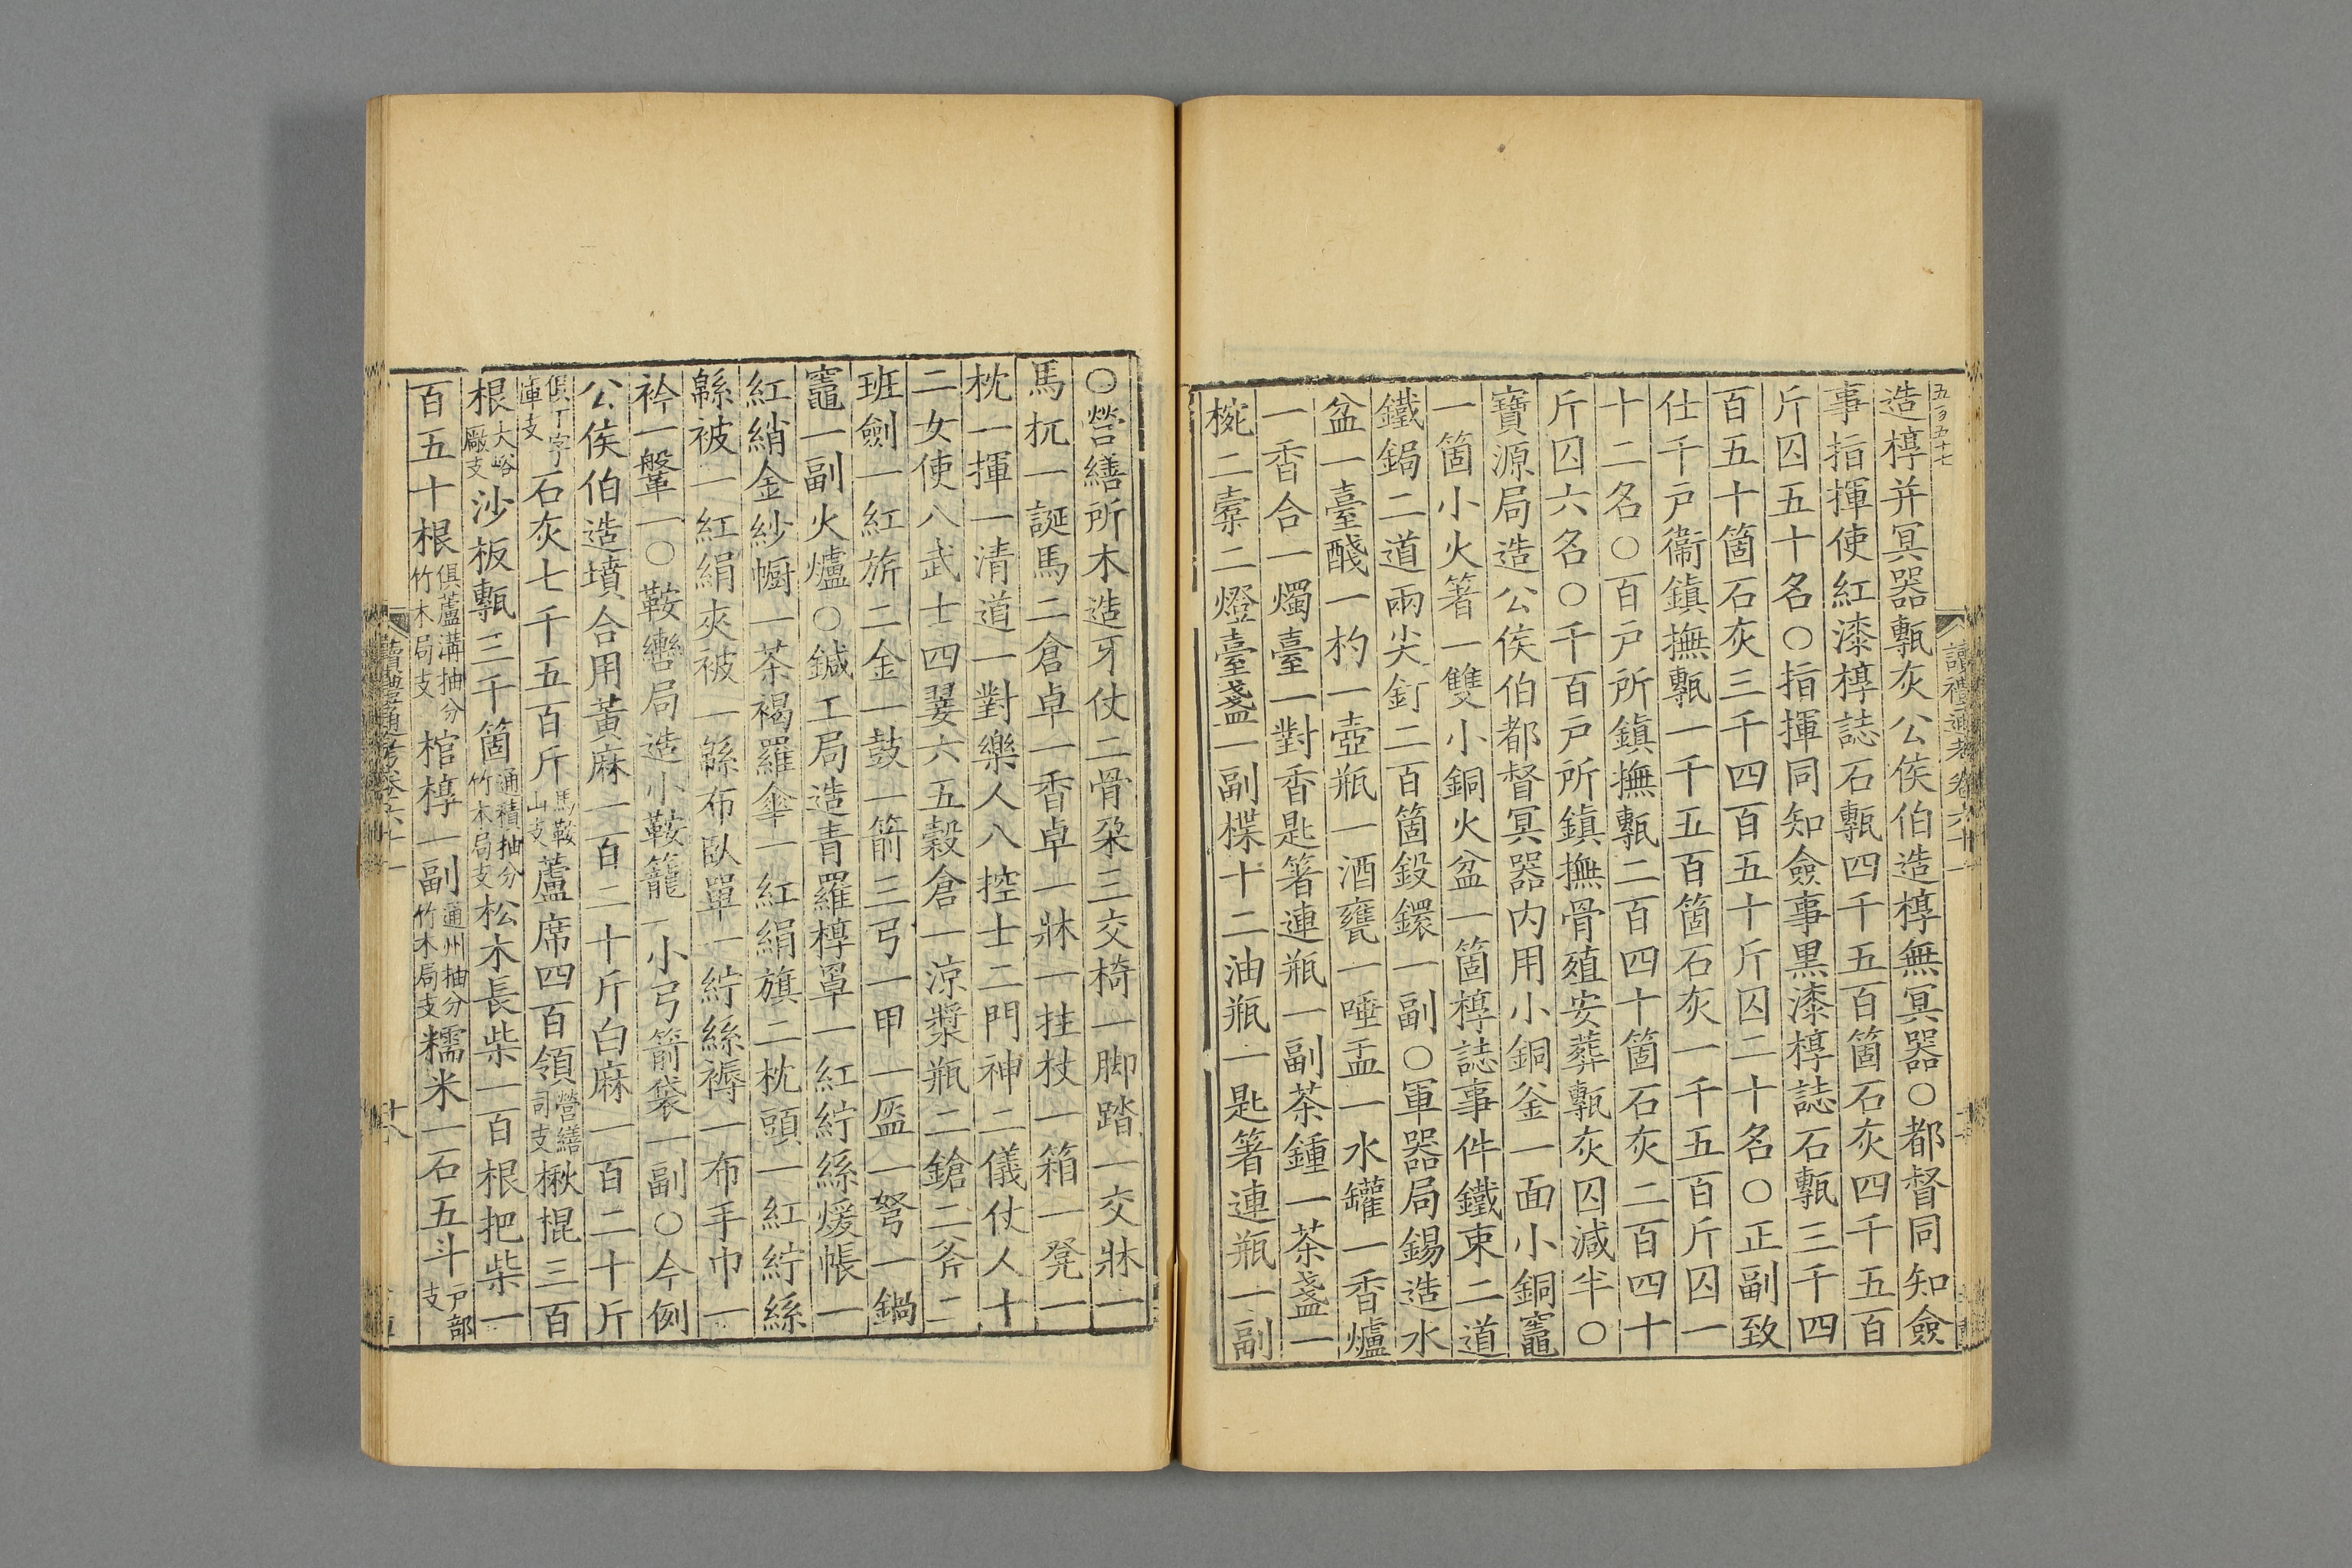 五百五十七
讀禮通考卷六十一
造槨并冥器甎灰公侯伯造槨無冥器○都督同知僉
事指揮使紅漆槨誌石甎四千五百箇石灰四千五百
斤囚五十名○指揮同知僉事黑漆槨誌石甎三千四
百五十箇石灰三千四百五十斤囚二十名○正副致
仕千戸衞鎮撫甎一千五百箇石灰一千五百斤囚一
十二名○百戸所鎮撫甎二百四十箇石灰二百四十
斤囚六名○千百戸所鎮撫骨殖安葬甎灰囚減半○
寶源局造公侯伯都督冥器内用小銅釜一面小銅竈
一箇小火箸一雙小銅火盆一箇槨誌事件鐵束二道
鐵鋦二道兩尖釘二百箇鋄鐶一副○軍器局錫造水
盆一臺醆一杓一壺瓶一酒甕一唾盂一水罐一香爐
一香合一燭臺一對香匙箸連瓶一副茶鍾一茶盞一
椀二槖二燈臺盞一副楪十二油瓶一匙箸連瓶一副
○營繕所木造牙仗二骨朶三交椅一脚踏一交牀一
馬杌一誕馬二倉卓一香卓一牀一拄杖一箱一凳一
枕一揮一清道一對樂人八控士二門神二儀仗人十
二女使八武士四翣六五穀倉一涼漿瓶二鎗二斧二
班劍一紅旂二金一鼓一箭三弓一甲一盔一弩一鍋
竈一副火爐○鍼工局造青羅槨罩一紅紵絲煖帳一
紅綃金紗㡡一茶褐羅傘一紅絹旗二枕頭一紅紵絲
緜被一紅絹夾被一緜布臥單一紵絲褥一布手巾一
衿一鞶一○鞍轡局造小鞍籠一小弓箭袋一副○今例
公侯伯造墳合用黃麻一百二十斤白麻一百二十斤
俱丁字庫支石灰七千五百斤馬鞍山支蘆席四百領營繕司支楸棍三百
根大峪廠支沙板甎三千箇通積抽分竹木局支松木長柴一百根把柴一
百五十根俱蘆溝抽分竹木局支棺槨一副通州抽分竹木局支糯米一石五斗戸部支
讀禮通考卷六十一
十八